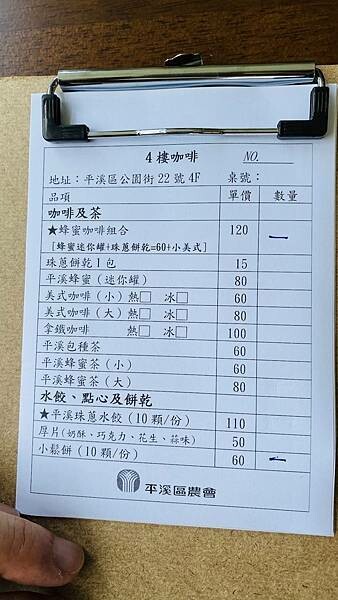 4樓咖啡 NO.
地址：平溪區公園街22號4F 桌號：
品項 單價 數量
咖啡及茶
★蜂蜜咖啡組合 120 一
[蜂蜜迷你罐+珠蔥餅乾=60+小美式]
珠蔥餅乾1包 15
平溪蜂蜜（迷你罐） 80
美式咖啡（小）熱□ 冰□ 60
美式咖啡（大）熱□ 冰□ 80
拿鐵咖啡 熱□ 冰□ 100
平溪包種茶 60
平溪蜂蜜茶（小） 60
平溪蜂蜜茶（大） 80
水餃、點心及餅乾
★平溪珠蔥水餃（10顆/份） 110
厚片(奶酥、巧克力、花生、蒜味) 50
小鬆餅（10顆/份） 60 一
平溪區農會